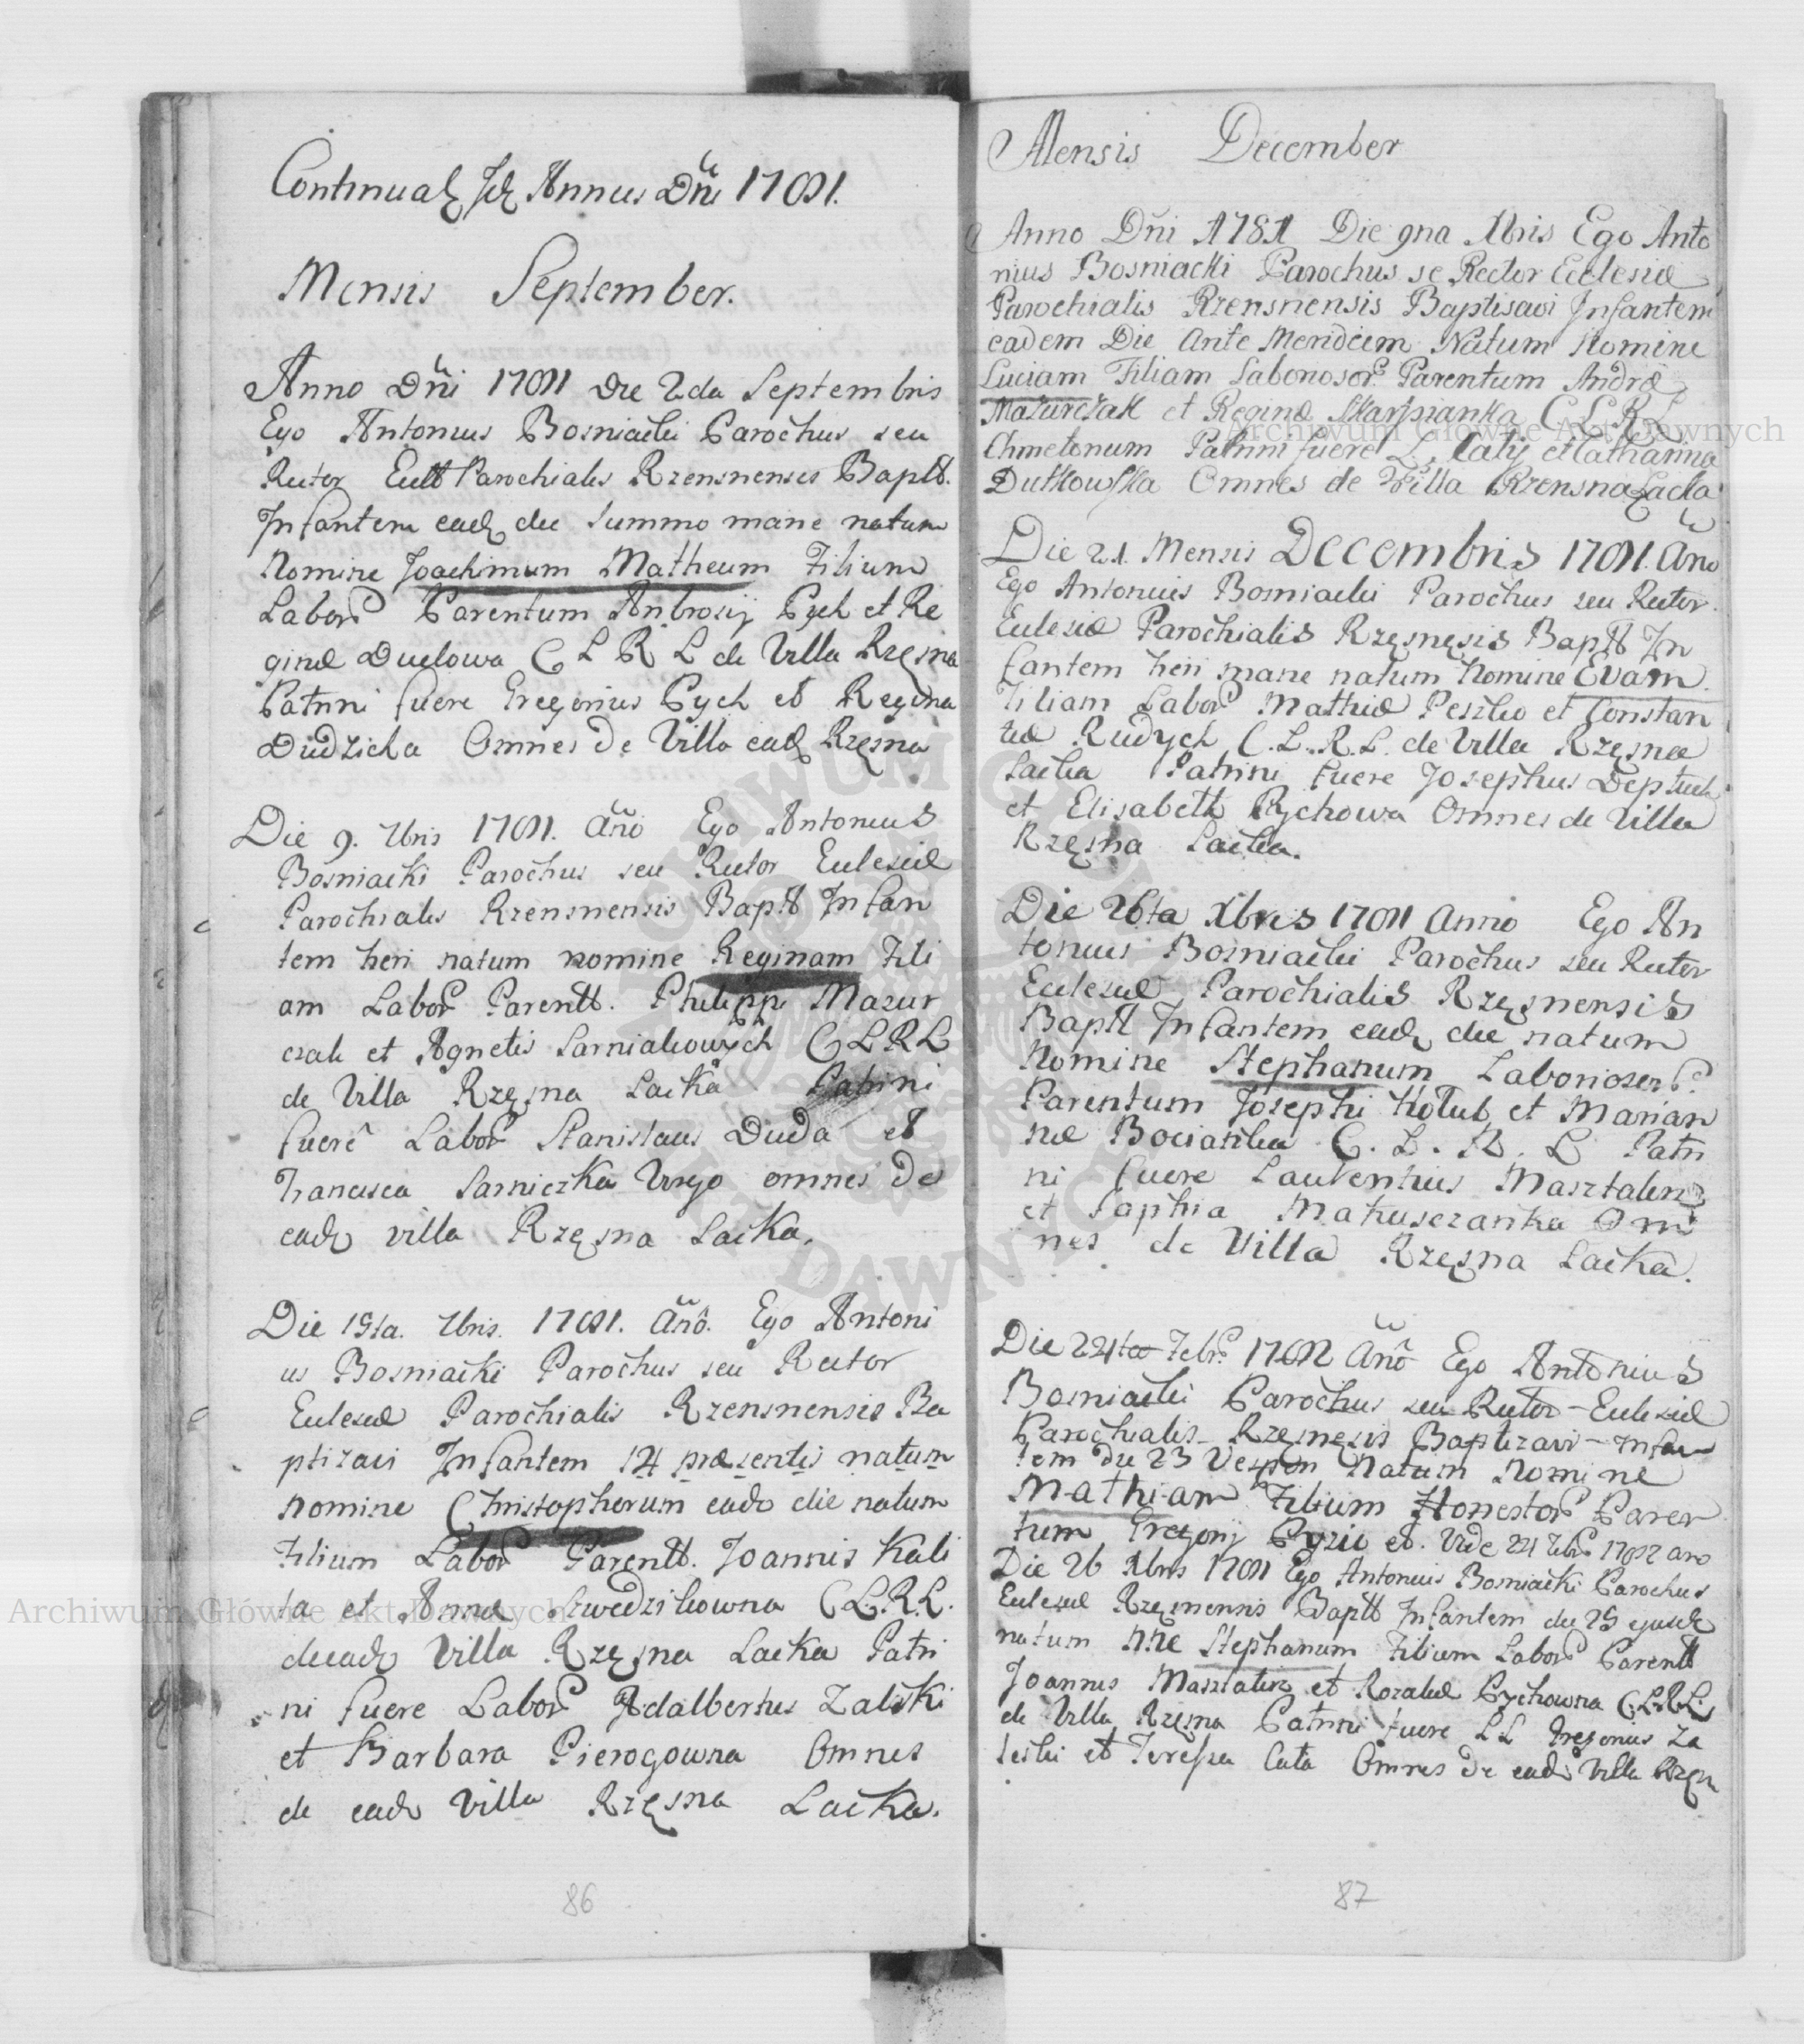 Continuat Jd Annus Dñi 1781.
Mensis September.
Anno Dñi 1781 Die 2da Septembris
Ego Antonius Bosniacki Parochus seu
Rector Eccl Parochialis Rzensnensis Baptt.
Infantem ead die summo mane natum
Nomine Joachimum Matheum Filium
Labor Parentum Ambrosij Pych et Re
ginæ Dudowa C L R L de Villa Rzęsna
Patrini fuere Gregorius Pych et Regina
Dudzicha Omnes De Villa ead Rzęsna
Die 9. 7bris 1781. Año Ego Antonius
Bosniacki Parochus seu Rector Eclesiæ
Parochialis Rzensnensis Baptt Infan
tem heri natum nomine Reginam Fili
am Labor Parentt. Philippi Mazur
czak et Agnetis Sarniakowych C L R L
de Villa Rzęsna Lacka Patrini
fuere Labor Stanislaus Duda et
Francisca Sarniczka Virgo omnes De
ead villa Rzęsna Lacka.
Die 15ta. 7bris. 1781. Año. Ego Antoni
us Bosniacki Parochus seu Rector
Eclesiæ Parochialis Rzensnensis Ba
ptizavi Infantem 14 præsentis natum
nomine Christophorum ead die natum
Filium Labor Parentt. Joannis Kali
ta et Annæ Szwedzikowna C.L.R.L.
de ead Villa Rzęsna Lacka Patri
ni fuere Labor Adalbertus Zaliski
et Barbara Pierogowna Omnes
de ead Villa Rzęsna Lacka.
86
Mensis December
Anno Dñi 1781 Die 9na Xbris Ego Anto
nius Bosniacki Parochus se Rector Ecclesiæ
Parochialis Rzensnensis Baptisavi Infantem
eadem Die Ante Meridiem Natum Nomine
Luciam Filiam Laboriosor Parentum Andræ
Mazurczak et Reginæ Skarpianka C L R L
Chmetonum Patrini fuere L. Caly et Catharina
Dutkowska Omnes de Villa Rzensna Lacka
Die 21. Mensis Decembris 1781. Año
Ego Antonius Bosniacki Parochus seu Rector
Eclesiæ Parochialis Rzęsnęsis Baptt In
fantem heri mane natum Nomine Evam
Filiam Labor Mathiæ Peszko et Constan
tiæ Rudych C.L.R.L. de Villa Rzęsna
Lacka Patrini fuere Josephus Deptuch
et Elisabeth Pychowa Omnes de Villa
Rzęsna Lacka.
Die 26ta Xbris 1781 Anno Ego An
tonius Bosniacki Parochus seu Rector
Eclesiæ Parochialis Rzęsnensis
Baptt Infantem ead die natum
Nomine Stephanum Laboriosor
Parentum Josephi Hołub et Marian
næ Bocianka C. L. R. L Patri
ni fuere Laurentius Masztalerz
et Sophia Matuszanka Om
nes de Villa Rzęsna Lacka.
Die 24ta Febr 1782 Año Ego Antonius
Bosniacki Parochus seu Rector Eclesiæ
Parochialis Rzęsnęsis Baptizavi Infan
tem die 23 Vesperi Natum Nomine
Mathiam Filium Honestor Paren
tum Gregorij Pyzic et. Vide 24 Febr 1782 ano
Die 26 Xbris 1781 Ego Antonius Bosniacki Parochus
Eclesiæ Rzęsnensis Baptt Infantem die 25 ejusd
natum nñe Stephanum Filium Labor Parentt
Joannis Masztalerz et Rozaliæ Pychowna C.L.R.L.
de Villa Rzęsna Patrini fuere LL Gregorius Za
leski et Teressa Cała Omnes De ead Villa Rzęsn
87
Archiwum Główne Akt Dawnych
Archiwum Główne Akt Dawnych